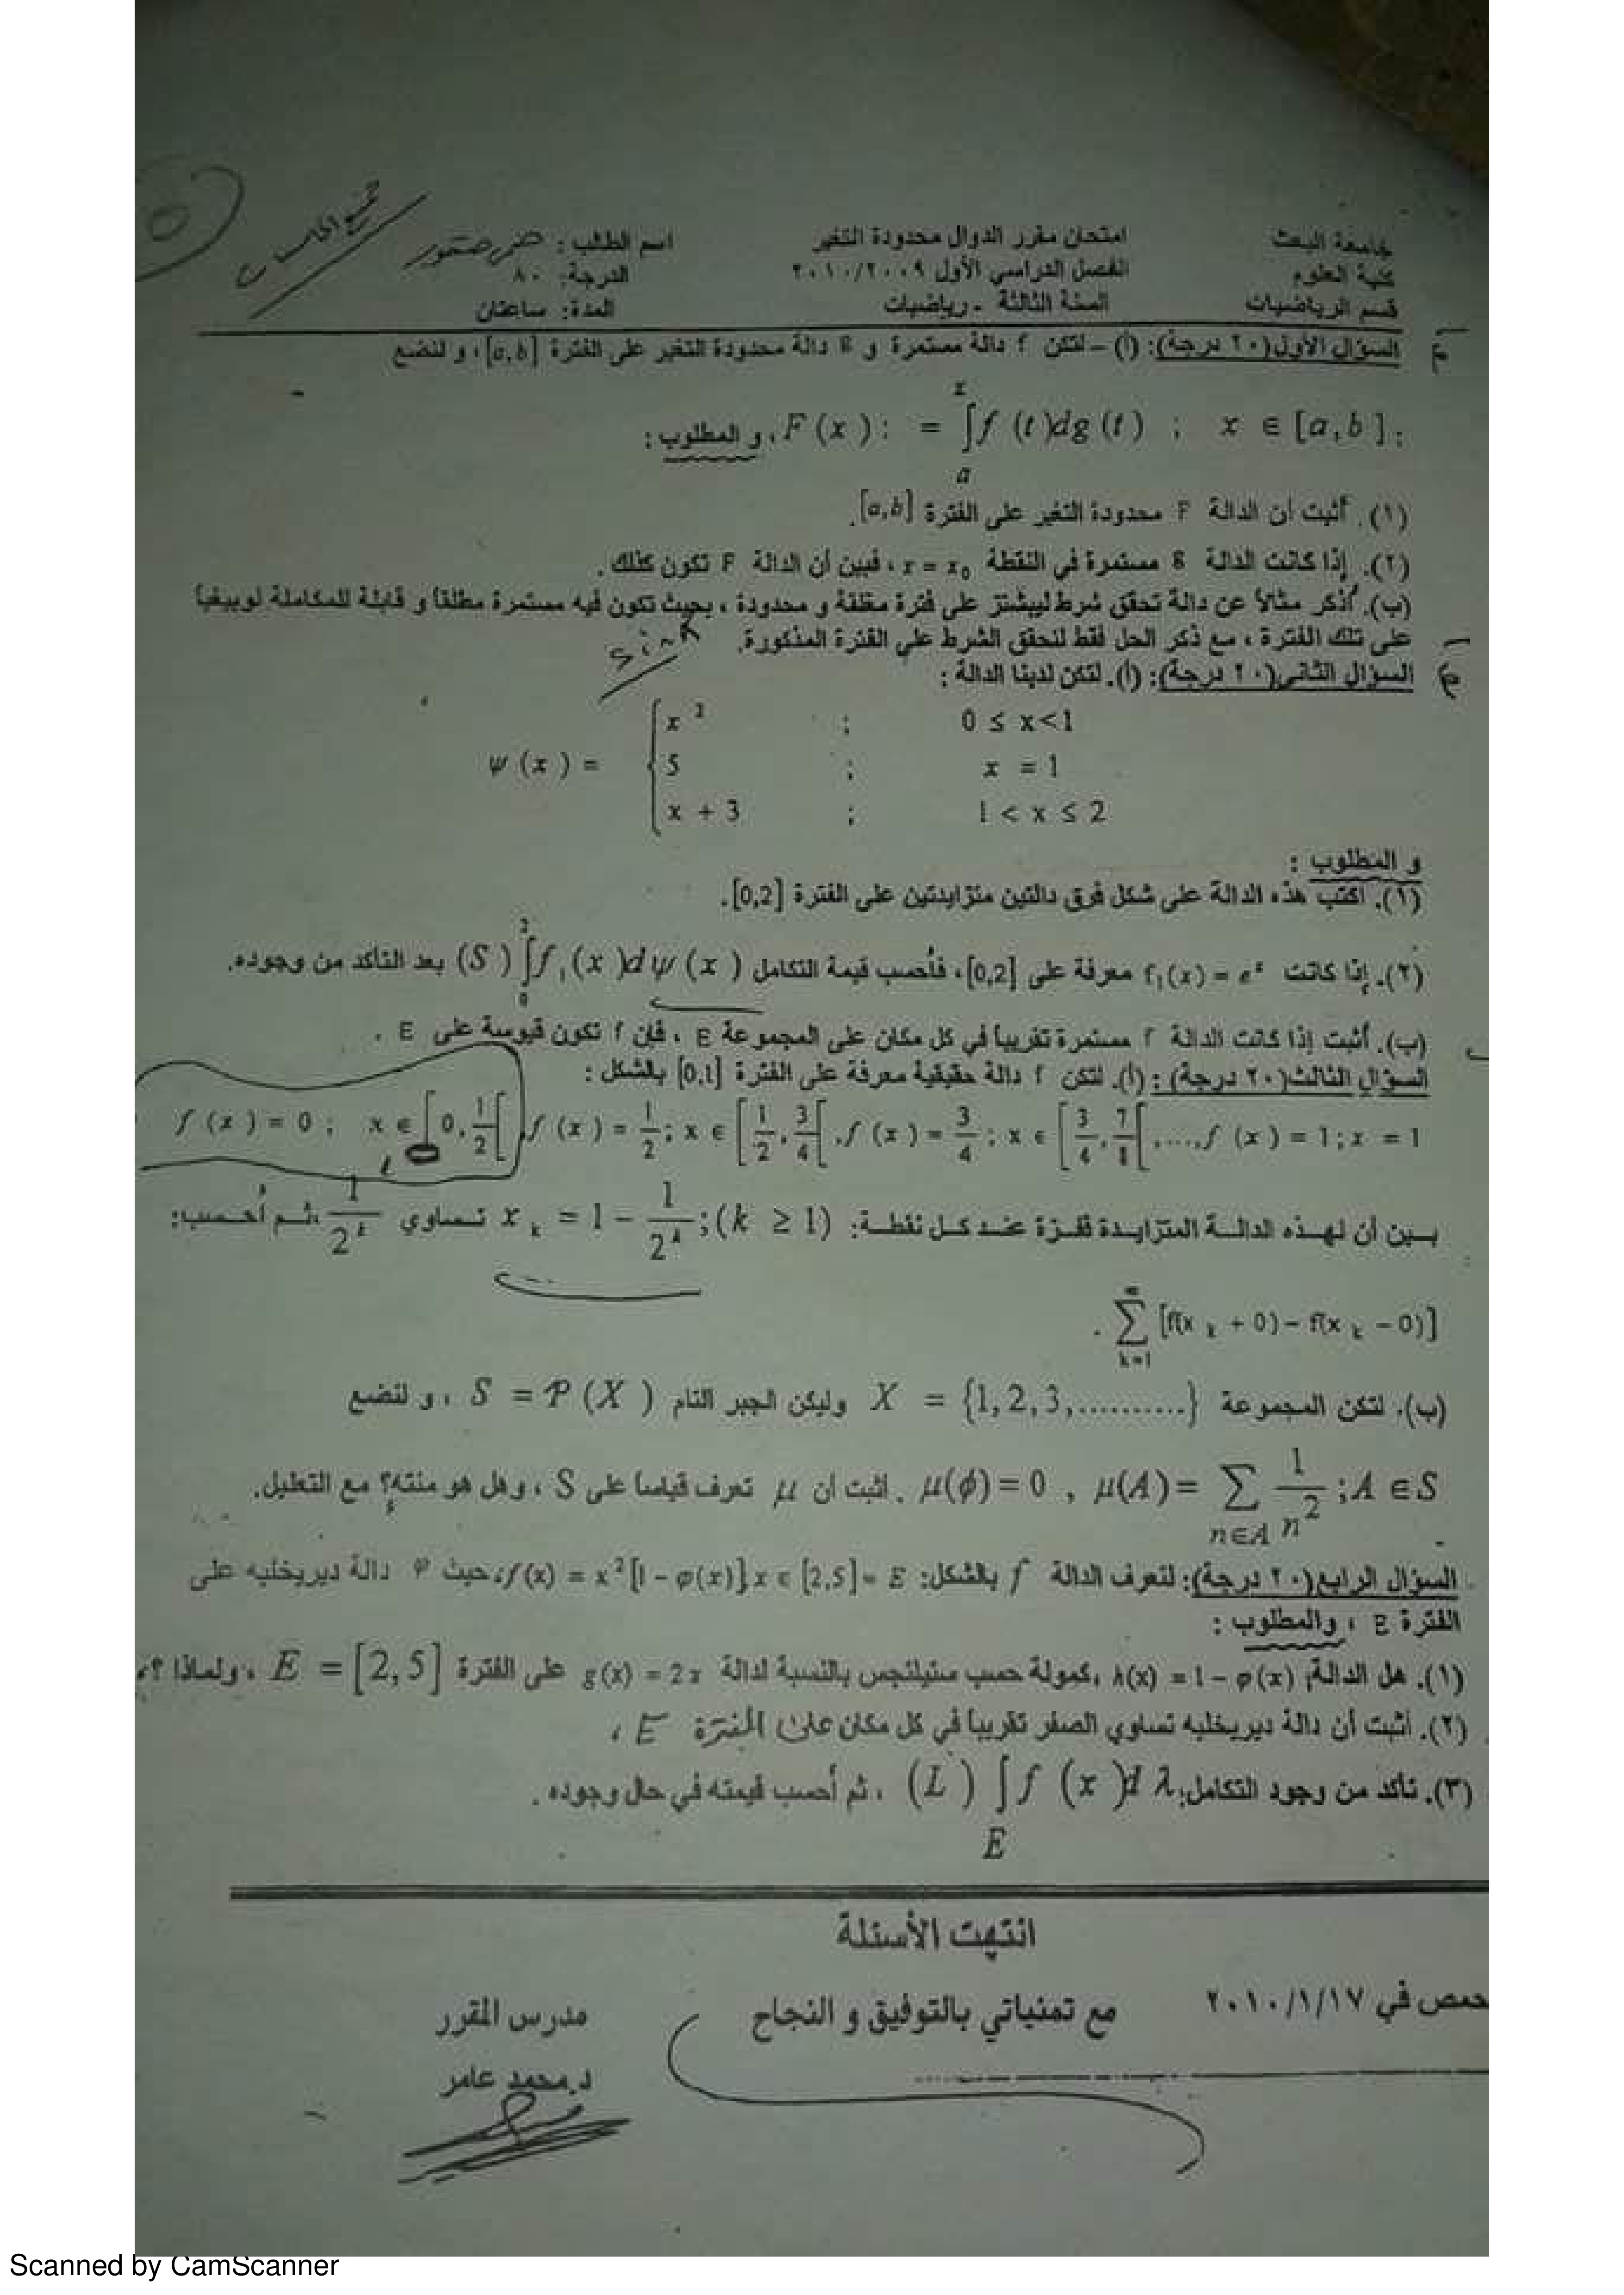 جامعة البعث
كلية العلوم
قسم الرياضيات
امتحان مقرر الدوال محدودة التغير
الفصل الدراسي الأول ٢٠١٠/٢٠٠٩
السنة الثالثة - رياضيات
اسم الطالب :
الدرجة: ٨٠
المدة: ساعتان
السؤال الأول(٢٠ درجة): (أ) – لتكن f دالة مستمرة و g دالة محدودة التغير على الفترة [a,b] ، و لنضع
F (x) : = ∫ₐˣ f (t)dg (t) ; x ∈ [a,b] ; ، و المطلوب :
(١). أثبت أن الدالة F محدودة التغير على الفترة [a,b].
(٢). إذا كانت الدالة g مستمرة في النقطة x = x₀ ، فبين أن الدالة F تكون كذلك .
(ب). أذكر مثالاً عن دالة تحقق شرط ليبشتز على فترة مغلقة و محدودة ، بحيث تكون فيه مستمرة مطلقاً و قابلة للمكاملة لوبيغياً
على تلك الفترة ، مع ذكر الحل فقط لتحقق الشرط على الفترة المذكورة.
sin x
السؤال الثاني(٢٠ درجة): (أ). لتكن لدينا الدالة :
ψ (x) = { x² ; 0 ≤ x<1
5 ; x = 1
x + 3 ; 1 < x ≤ 2
و المطلوب :
(١). اكتب هذه الدالة على شكل فرق دالتين متزايدتين على الفترة [0,2] .
(٢). إذا كانت f₁(x) = eˣ معرفة على [0,2] ، فأحسب قيمة التكامل (S) ∫₀² f₁(x)dψ(x) بعد التأكد من وجوده.
(ب). أثبت إذا كانت الدالة f مستمرة تقريباً في كل مكان على المجموعة E ، فإن f تكون قيوسة على E .
السؤال الثالث(٢٠ درجة) : (أ). لتكن f دالة حقيقية معرفة على الفترة [0,1] بالشكل :
f (x) = 0 ; x ∈ [0, 1/2[ , f (x) = 1/2 ; x ∈ [1/2, 3/4[ , f (x) = 3/4 ; x ∈ [3/4, 7/8[ , ...., f (x) = 1 ; x = 1
بين أن لهذه الدالة المتزايدة قفزة عند كل نقطة: x_k = 1 − 1/2^k ; (k ≥ 1) تساوي 1/2^k ، ثم أحسب:
∑_{k=1}^{∞} [f(x_k + 0) − f(x_k − 0)] .
(ب). لتكن المجموعة X = {1, 2, 3, ..........} وليكن الجبر التام S = P (X) ، و لنضع
μ(A) = ∑_{n∈A} 1/n² ; A ∈ S , μ(φ) = 0 . أثبت أن μ تعرف قياساً على S ، وهل هو منته؟ مع التعليل.
السؤال الرابع(٢٠ درجة): لتعرف الدالة f بالشكل: f(x) = x²[1 − φ(x)] x ∈ [2,5] = E ، حيث φ دالة ديريخليه على
الفترة E ، والمطلوب :
(١). هل الدالة h(x) = 1 − φ(x) ، كمولة حسب ستيلتجس بالنسبة لدالة g(x) = 2x على الفترة E = [2,5] ، ولماذا ؟
(٢). أثبت أن دالة ديريخليه تساوي الصفر تقريباً في كل مكان على الفترة E ،
(٣). تأكد من وجود التكامل: (L) ∫_E f (x)d λ ، ثم أحسب قيمته في حال وجوده .
انتهت الأسئلة
حمص في ٢٠١٠/١/١٧
مع تمنياتي بالتوفيق و النجاح
مدرس المقرر
د.محمد عامر
Scanned by CamScanner